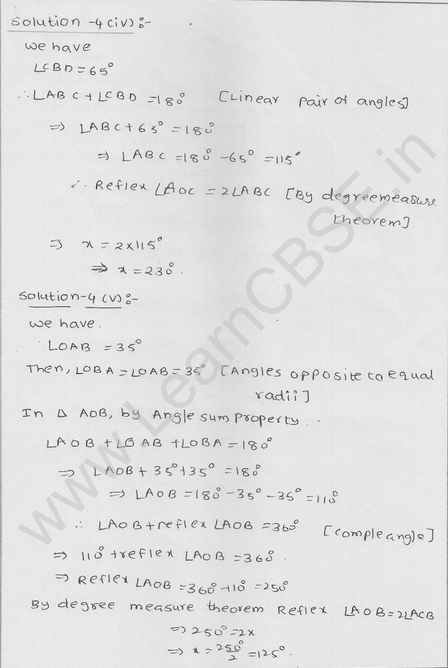 Solution -4(iv):-
we have
∠CBD = 65°
∴ ∠ABC + ∠CBD = 180° [Linear pair of angles]
⇒ ∠ABC + 65° = 180°
⇒ ∠ABC = 180° - 65° = 115°
∴ Reflex ∠AOC = 2∠ABC [By degree measure
theorem]
⇒ x = 2×115°
⇒ x = 230°.
Solution-4 (v):-
we have.
∠OAB = 35°
Then, ∠OBA = ∠OAB = 35° [Angles opposite to equal
radii]
In Δ AOB, by Angle sum property.
∠AOB + ∠OAB + ∠OBA = 180°
⇒ ∠AOB + 35° + 35° = 180°
⇒ ∠AOB = 180° - 35° - 35° = 110°
∴ ∠AOB + reflex ∠AOB = 360° [comple angle]
⇒ 110° + reflex ∠AOB = 360°.
⇒ Reflex ∠AOB = 360° - 110° = 250°
By degree measure theorem Reflex ∠AOB = 2∠ACB
⇒ 250° = 2x
⇒ x = 250°/2 = 125°.
www.LearnCBSE.in